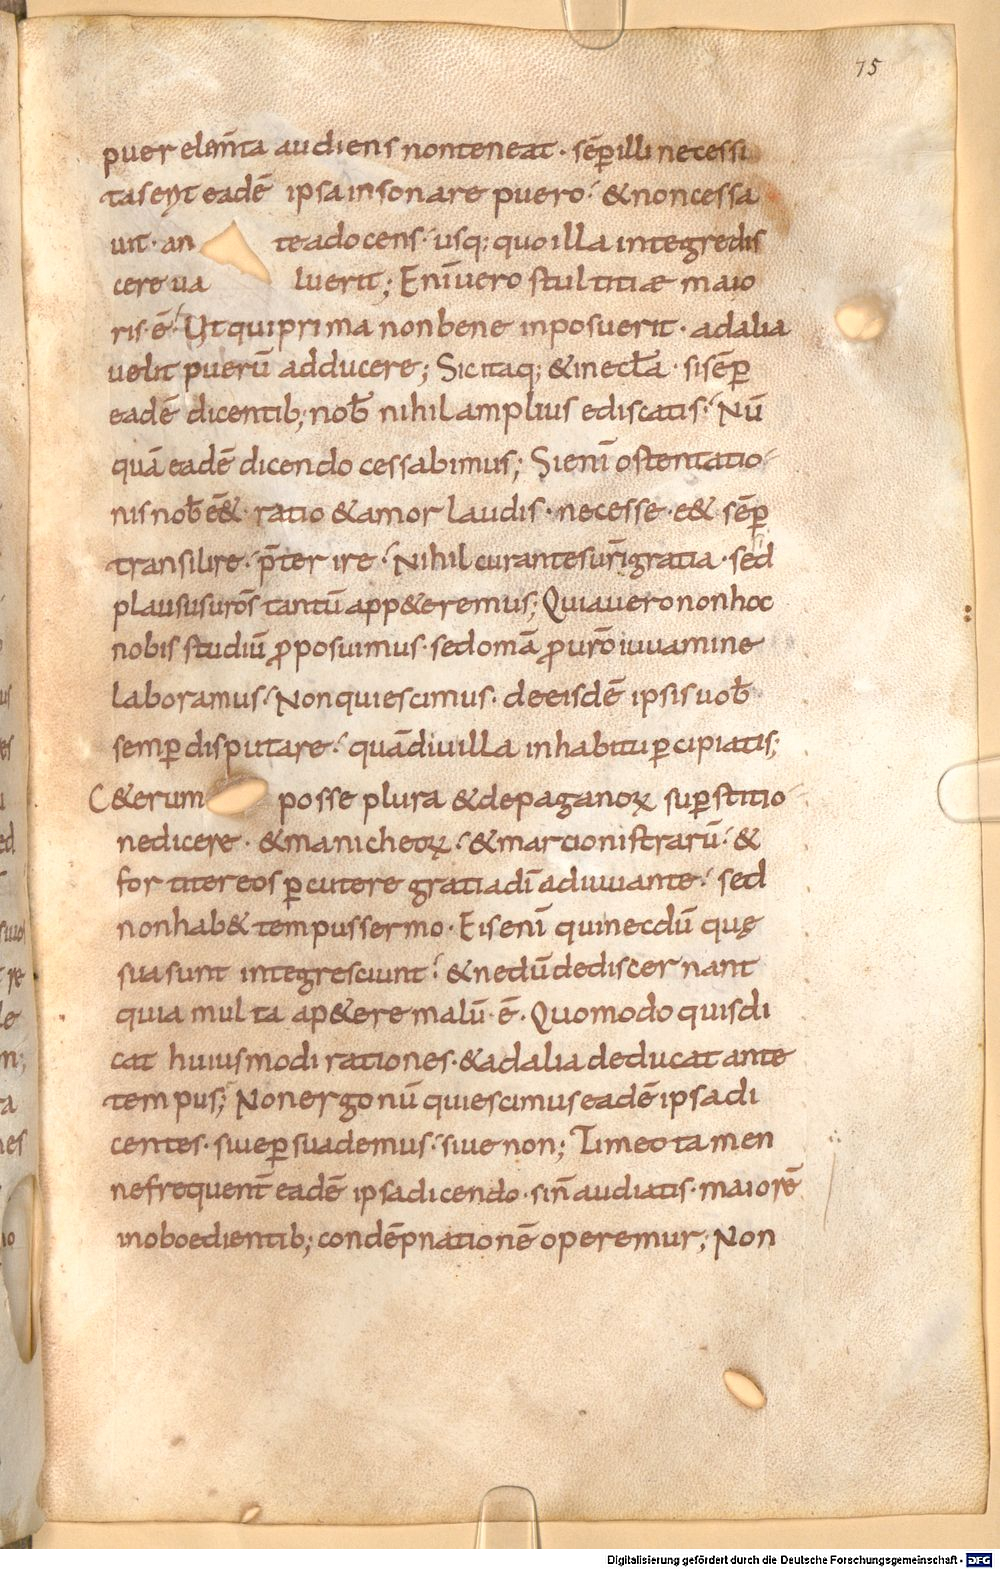 75
puer elem̄ta audiens non teneat · sēp illi necessi
tas erit eadē ipsa insonare puero · & non cessa
uit · an te adocens · usq; quo illa integre dis
cere ua luerit ; Enīuero stultitiæ maio
ris · ē · Ut qui prima non bene inposuerit · ad alia
uelit puerū adducere ; Sic itaq; & in ecl̄a · si sēp
eadē dicentib; nob̄ nihil amplius ediscatis · Nū
quā eadē dicendo cessabimus ; Si enī ostentatio
nis nob̄ ēet ratio & amor laudis · necesse · e& sēp
transilire · p̄ter ire · Nihil curantes ur̄i gratia · sed
plausus uros̄ tantū app&eremus ; Quia uero non hoc
nobis studiū ꝓposuimus · sed omā ꝓ urō iuuamine
laboramus · Non quiescimus · de eisdē ipsis uob̄
semp disputare · quādiu illa in habitu pcipiatis ;
C&erum posse plura & de paganoꝝ supstitio
ne dicere · & manicheoꝝ · & marcionistrarū · &
fortiter eos pcutere gratia dī adiuuante · sed
non hab& tempus sermo · Eis enī qui necdū quę
sua sunt integre sciunt · & nedū dediscernant
quia multa ap&ere malū · ē · Quomodo quis di
cat huiusmodi rationes · & ad alia deducat ante
tempus ; Non ergo nū quiescimus eadē ipsa di
centes · siue psuademus · siue non ; Timeo tamen
ne frequent̄ eadē ipsa dicendo · sin̄ audiatis · maiorē
inoboedientib; condēpnationē operemur ; Non
Digitalisierung gefördert durch die Deutsche Forschungsgemeinschaft - DFG